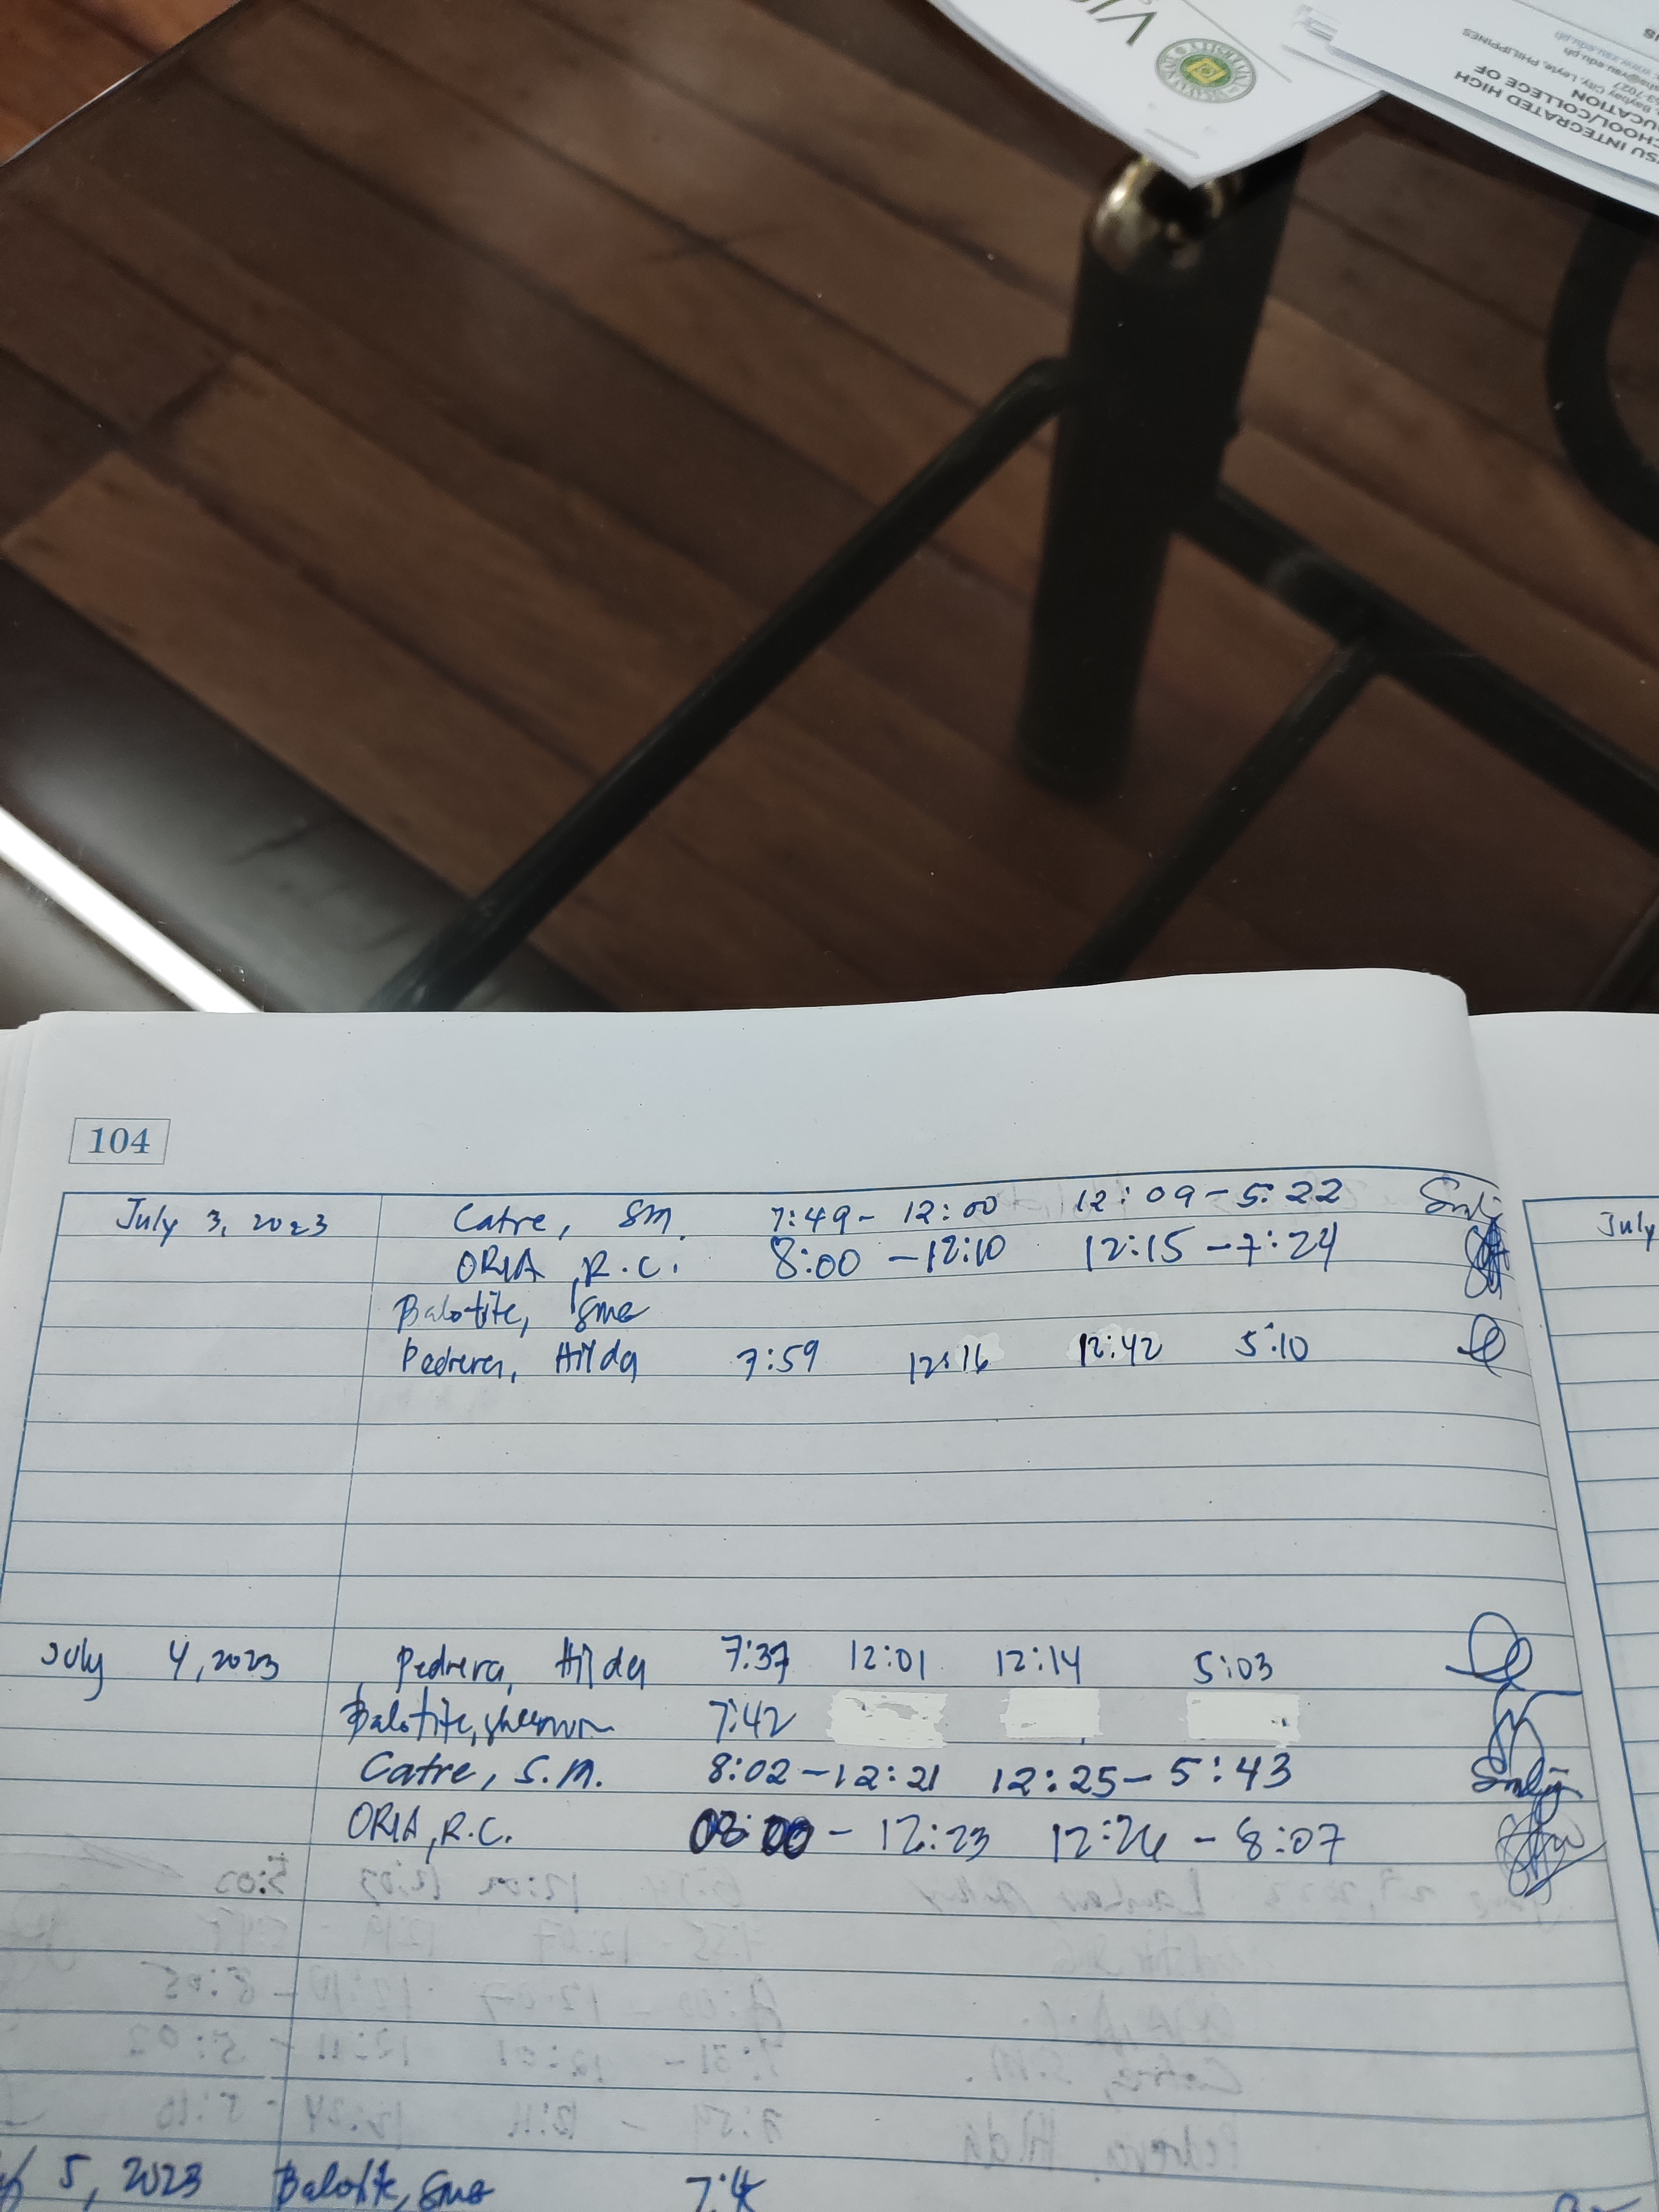 VI
SU INTEGRATED HIGH
CHOOL/COLLEGE OF
UCATION
Baybay City, Leyte, PHILIPPINES
104
July 3, 2023 Catre, SM. 7:49 - 12:00 12:09 - 5:22
ORIA, R.C. 8:00 - 12:10 12:15 - 7:24
Balotite, sme
Pedrera, Hilda 7:59 12:16 12:42 5:10
July 4, 2023 Pedrera, Hilda 7:37 12:01 12:14 5:03
Balotite, 7:42
Catre, S.M. 8:02 - 12:21 12:25 - 5:43
ORIA, R.C. 08:00 - 12:23 12:26 - 8:07
5, 2023 Balotite, sme
July